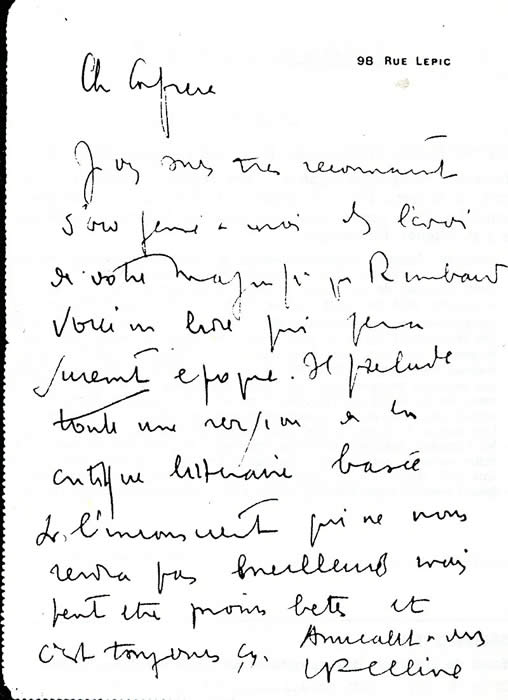 98 RUE LEPIC
Ch Confrere
Je vs suis tres reconnaissant
d'avoir pensé a moi ds l'envoi
de votre magnifique Rimbaud
Voici un livre qui fera
surement epoque. Il prelude
toute une version de la
critique litteraire basée
sur l'inconscient qui ne nous
rendra pas meilleurs mais
peut etre moins betes et
c'est toujours ça. Amicalet a vous
LF Celine